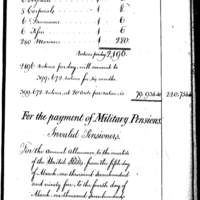 8 Corporals " 1 8.
6 Drummers " 1 6.
6 Fifers " 1 6.
280 Marines " 1 280.
Rations per day 2,196.
2196 rations per day, will amount to
399,672 rations for six months
399,672 Rations, at 20 cents per ration is 79,934.40
For the payment of Military Pensions.
Invalid Pensioners.
For the annual allowance to the invalids
of the United States from the fifth day
of March, one thousand seven hundred
and ninety six, to the fourth day of
March, one thousand seven hundred